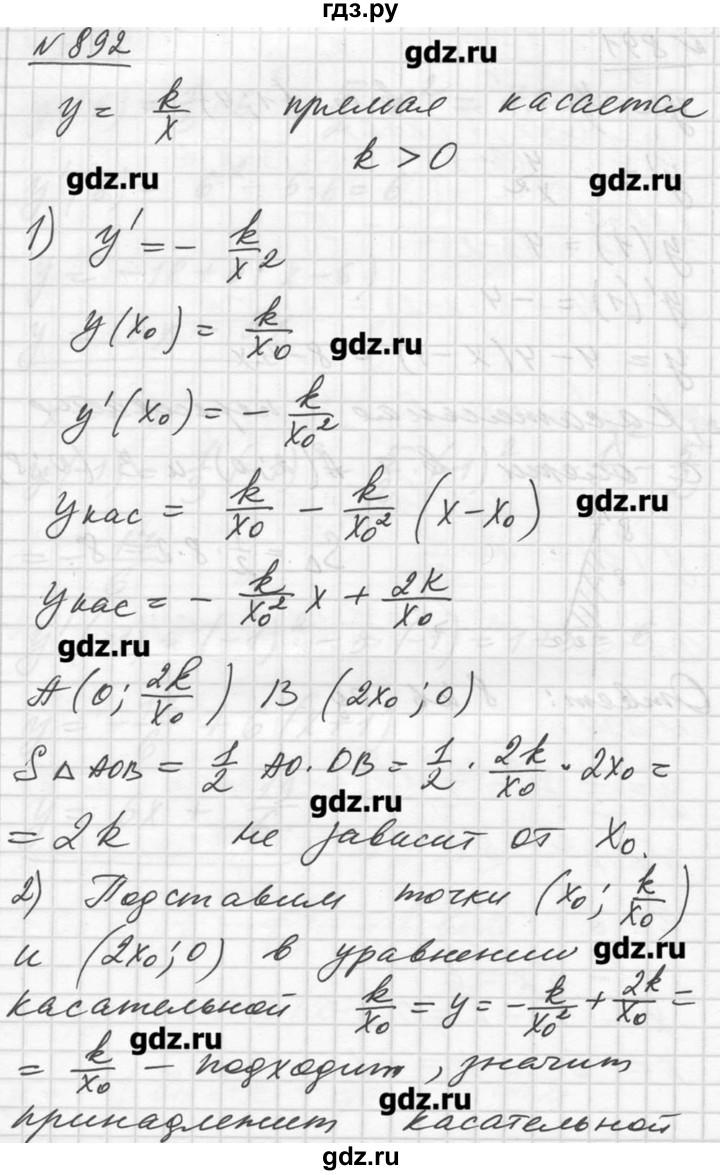 гдз.ру
№892
gdz.ru
y = k/x прямая касается
k > 0
gdz.ru gdz.ru
1) y' = - k/x²
y(x₀) = k/x₀ gdz.ru
y'(x₀) = - k/x₀²
yкас = k/x₀ - k/x₀² (x-x₀) gdz.ru
yкас = - k/x₀² x + 2k/x₀
gdz.ru
A(0; 2k/x₀) B (2x₀; 0)
S△AOB = 1/2 AO·OB = 1/2 · 2k/x₀ · 2x₀ =
gdz.ru
= 2k не зависит от x₀.
2) Подставим точки (x₀; k/x₀)
и (2x₀; 0) в уравнении gdz.ru
касательной k/x₀ = y = - k/x₀² + 2k/x₀ =
gdz.ru
= k/x₀ – подходит, значит
gdz.ru
принадлежит касательной
gdz.ru